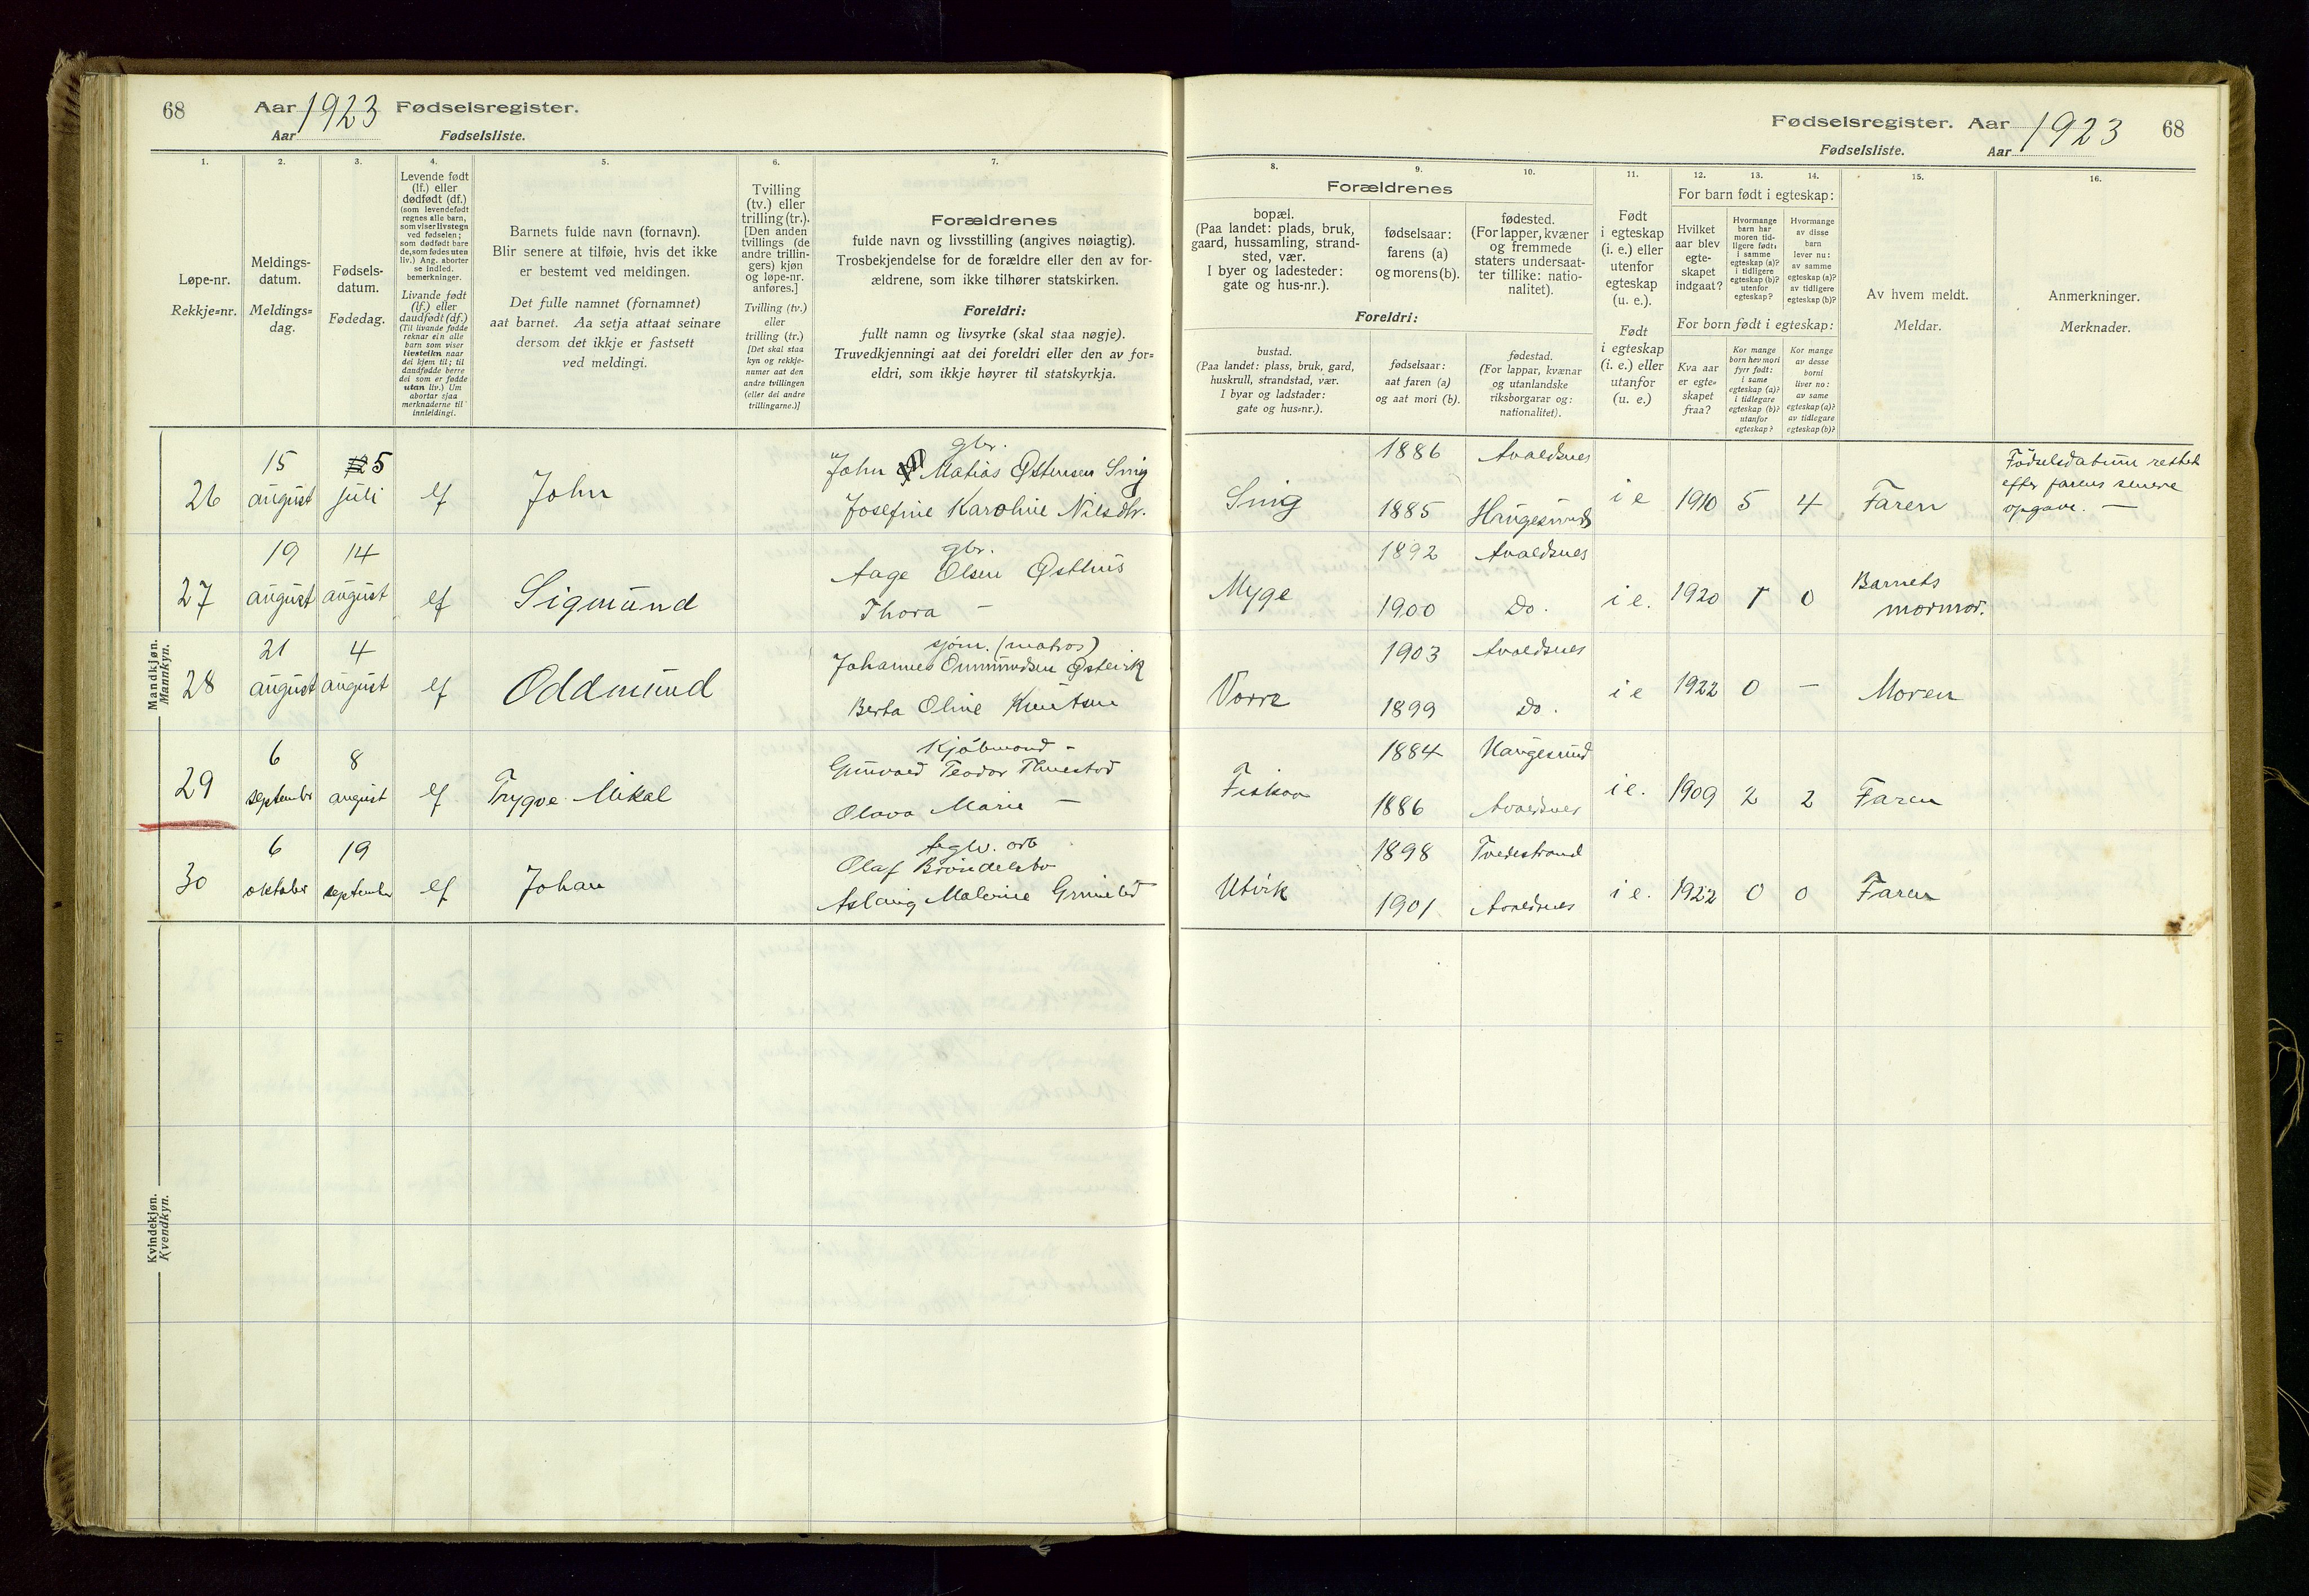 68
Aar 1923 Fødselsregister.
Aar Fødselsliste.
Fødselsregister. Aar 1923 68
Fødselsliste. Aar
1.
Løpe-nr.
Rekkje=nr.
2.
Meldings-
datum.
Meldings=
dag.
3.
Fødsels-
datum.
Fødedag.
4.
Levende født
(lf.) eller
dødfødt (df.)
(som levendefødt
regnes alle barn,
som viser livstegn
ved fødselen;
som dødfødt bare
de, som fødes uten
liv.) Ang. aborter
se indled.
bemerkninger.
Livande født
(lf.) eller
daudfødt (df.)
(Til livande fødde
reknar ein alle
barn som viser
livsteikn naar
dei kjem til; til
daudfødde berre
dei som er fødde
utan liv.) Um
abortar sjaa
merknaderne til
innleidingi.
5.
Barnets fulde navn (fornavn).
Blir senere at tilføie, hvis det ikke
er bestemt ved meldingen.
Det fulle namnet (fornamnet)
aat barnet. Aa setja attaat seinare
dersom det ikkje er fastsett
ved meldingi.
6.
Tvilling
(tv.) eller
trilling (tr.).
[Den anden
tvillings (de
andre trillin-
gers) kjøn
og løpe-nr.
anføres.]
Tvilling (tv.)
eller
trilling (tr.)
[Det skal staa
kyn og rekkje-
numer aat den
andre tvillingen
(eller dei andre
trillingarne.)]
7.
Forældrenes
fulde navn og livsstilling (angives nøiagtig).
Trosbekjendelse for de forældre eller den av for-
ældrene, som ikke tilhører statskirken.
Foreldri:
fullt namn og livsyrke (skal staa nøgje).
Truvedkjenningi aat dei foreldri eller den av for=
eldri, som ikkje høyrer til statskyrkja.
Forældrenes
8.
bopæl.
(Paa landet: plads, bruk,
gaard, hussamling, strand-
sted, vær.
I byer og ladesteder:
gate og hus-nr.).
9.
fødselsaar:
farens (a)
og morens (b).
10.
fødested.
(For lapper, kvæner
og fremmede
staters undersaat-
ter tillike: natio-
nalitet).
Foreldri:
bustad.
(Paa landet: plass, bruk, gard,
huskrull, strandstad, vær.
I byar og ladstader:
gate og hus=nr.).
fødselsaar:
aat faren (a)
og aat mori (b).
fødestad.
(For lappar, kvænar
og utanlandske
riksborgarar og:
nationalitet).
11.
Født
i egteskap
(i. e.) eller
utenfor
egteskap
(u. e.).
Født
i egteskap
(i. e.) eller
utanfor
(u. e.)
12. 13. 14.
For barn født i egteskap:
Hvilket
aar blev
egte-
skapet
indgaat?
Hvormange
barn har
moren tid-
ligere født:
i samme
egteskap (a)?
i tidligere
egteskap (b)?
utenfor
egteskap?
Hvormange
av disse
barn
lever nu:
av samme
egteskap (a)?
av tidligere
egteskap (b)?
For born født i egteskap:
Kva aar
er egte=
skapet
fraa?
Kor mange
born hev mori
fyrr født:
i same
egteskap (a)?
i tidlegare
egteskap (b)?
utanfor
egteskap?
Kor mange
av desse
borni
liver no:
av same
egteskap (a)?
av tidlegare
egteskap (b)?
15.
Av hvem meldt.
Meldar.
16.
Anmerkninger.
Merknader.
Mandkjøn.
Mannkyn.
26 15 august 5 juli lf John
gbr.
John Matias Østensen
Josefine Karoline Nilsdtr.
1886 Avaldsnes
1885 Haugesund
i e 1910 5 4 Faren
Fødselsdatum rettet
efter farens senere
opgave. —
27 19 august 14 august lf Sigmund
gbr.
Aage Olsen Østhus
Thora —
Myge
1892 Avaldsnes
1900 Do.
i e. 1920 1 0 Barnets
mormor.
28 21 august 4 august lf Oddmund
sjøm. (matros)
Johannes Ommundsen Østevik
Berta Oline Knutsen
Vorre
1903 Avaldsnes
1899 Do.
i e 1922 0 — Moren
29 6 september 8 august lf Trygve Mikal
Kjøbmand —
Teodor
Olava Marie —
1884 Haugesund
1886 Avaldsnes
i e. 1909 2 2 Faren
30 6 oktober 19 september lf Johan
arb
Olaf
Aslaug Malerine
Utvik
1898 Tvedestrand
1901 Avaldsnes
i e. 1922 0 0 Faren
Kvindekjøn.
Kvendkyn.